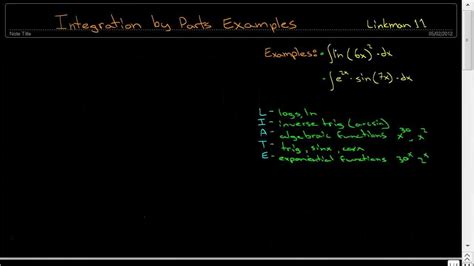 Integration by Parts Examples
Linkman 11
Note Title
05/02/2012
Examples: - ∫ln(6x)² · dx
- ∫e²ˣ · sin(7x) · dx
L - logs, ln
I - inverse trig (arcsin)
A - algebraic functions x³⁰, x²
T - trig, sinx, cosx
E - exponential functions 30ˣ 2ˣ